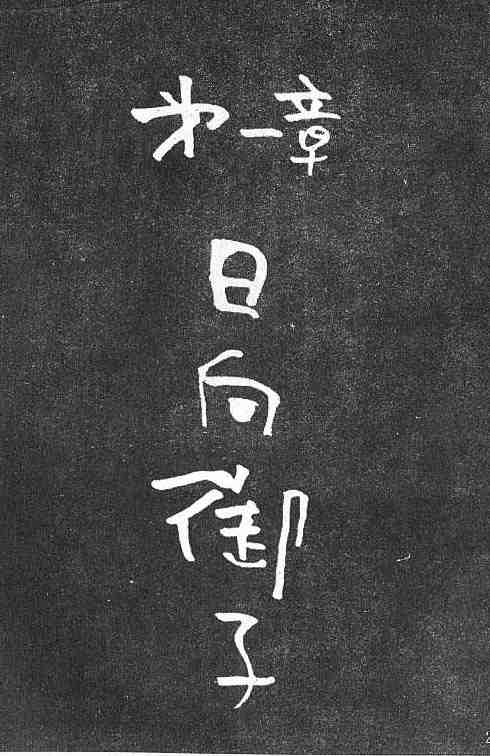 第一章
日向御子